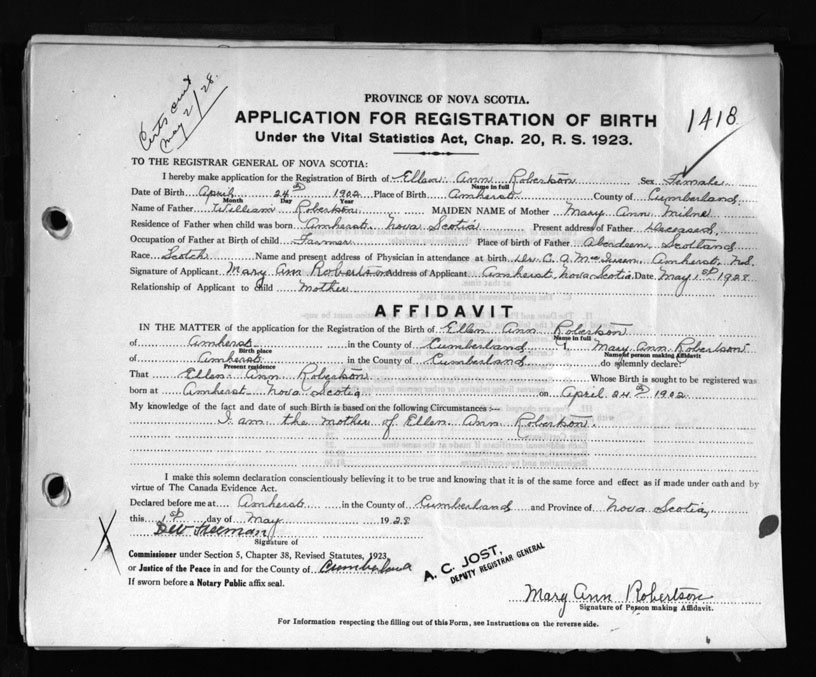 Certs out
May 2/28.
PROVINCE OF NOVA SCOTIA.
APPLICATION FOR REGISTRATION OF BIRTH
1418
Under the Vital Statistics Act, Chap. 20, R. S. 1923.
TO THE REGISTRAR GENERAL OF NOVA SCOTIA:
I hereby make application for the Registration of Birth of Ellen Ann Robertson Sex Female
Name in full
Date of Birth April 24th 1902 Place of Birth Amherst County of Cumberland
Month Day Year
Name of Father William Robertson MAIDEN NAME of Mother Mary Ann Milne
Residence of Father when child was born Amherst Nova Scotia Present address of Father Deceased
Occupation of Father at Birth of child Farmer Place of birth of Father Aberdeen, Scotland
Race Scotch Name and present address of Physician in attendance at birth Dr. C. A. Amherst, N.S.
Signature of Applicant Mary Ann Robertson Address of Applicant Amherst, Nova Scotia. Date May 1st 1928
Relationship of Applicant to child Mother
AFFIDAVIT
IN THE MATTER of the application for the Registration of the Birth of Ellen Ann Robertson
Name in full
of Amherst in the County of Cumberland I, Mary Ann Robertson
Birth place Name of person making Affidavit
of Amherst in the County of Cumberland do solemnly declare:
Present residence
That Ellen Ann Robertson Whose Birth is sought to be registered was
born at Amherst Nova Scotia on April 24th 1902
My knowledge of the fact and date of such Birth is based on the following Circumstances :—
I am the mother of Ellen Ann Robertson.
I make this solemn declaration conscientiously believing it to be true and knowing that it is of the same force and effect as if made under oath and by
virtue of The Canada Evidence Act.
Declared before me at Amherst in the County of Cumberland and Province of Nova Scotia,
this 1st day of May 1928
Freeman
Signature of
Commissioner under Section 5, Chapter 38, Revised Statutes, 1923
or Justice of the Peace in and for the County of Cumberland
If sworn before a Notary Public affix seal.
A. C. JOST,
DEPUTY REGISTRAR GENERAL
Mary Ann Robertson
Signature of Person making Affidavit.
For Information respecting the filling out of this Form, see Instructions on the reverse side.